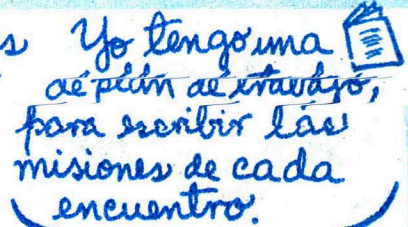 s Yo tengo una
de plan de trabajo,
para escribir las
misiones de cada
encuentro.